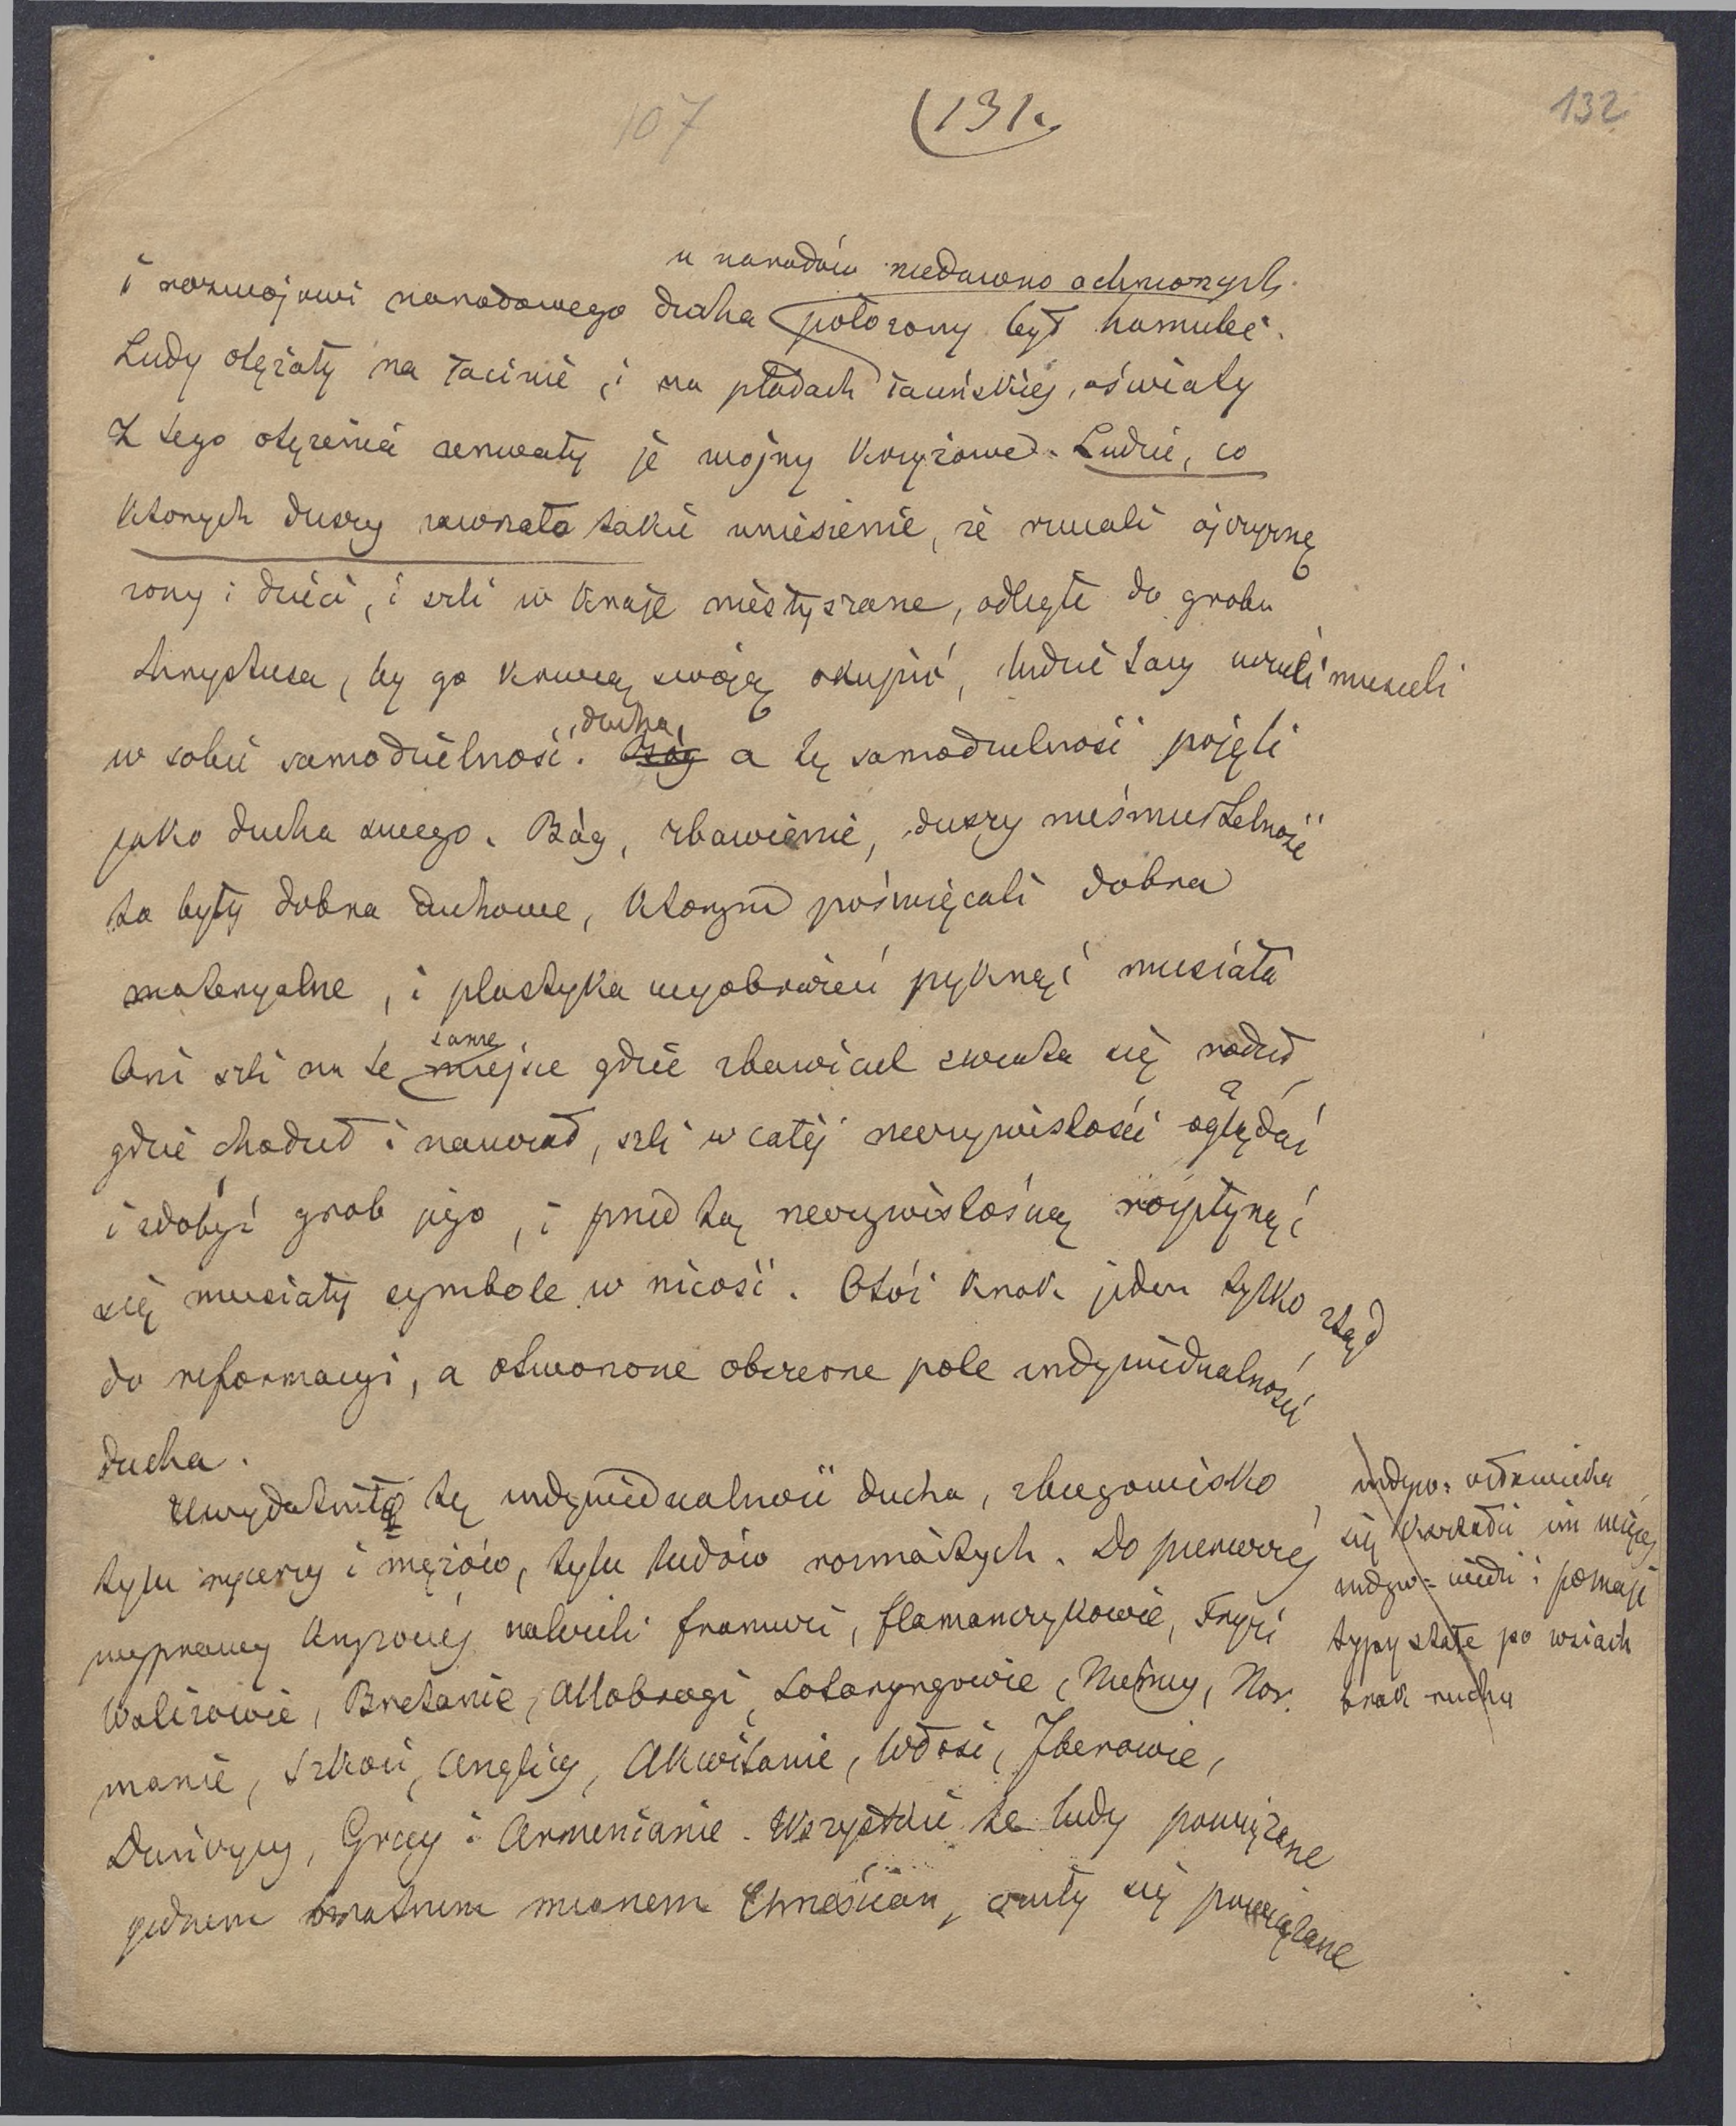 107
(131.
132
u narodów niedawno ochrzconych
i rozwojowi narodowego ducha położony był hamulec.
Ludy otężały na łacinie, i na płodach łacińskiej oświaty
Z tego otężenia zerwały je wojny krzyżowe. Ludzie, co
których duszy zawrzało takie uniesienie, że rzucali ojczyznę
żony i dzieci, i szli w kraje niesłyszane, odległe do grobu
Chrystusa, by go krwią swoją okupić, ludzie tacy uczuli musieli
w sobie samodzielność ducha, Bóg a tę samodzielność pojęli
jako ducha swego. Bóg, zbawienie, duszy nieśmiertelność
to były dobra duchowe, którym poświęcali dobra
materyalne, i plastyka wyobrażeń pęknąć musiała
Oni szli na te same miejsce gdzie zbawiciel świata się rodził
gdzie chodził i nauczał, szli w całej rzeczywistości oglądać
i zdobyć grob jego, i przed tą rzeczywistością rozpłynąć
się musiały symbole w nicość. Otóż krok jeden tylko ztąd
do reformacyi, a otworzone obszerne pole indywidualności
ducha.
Uwydatniło tę indywidualność ducha, zbiegowisko
tylu rycerzy i mężów, tylu ludów rozmaitych. Do pierwszej
wyprawy krzyżowej należeli francuzi, flamandczykowie, Fryzi
Walizowie, Bretanie, Allobrogi, Lotaryngowie, Niemcy, Nor-
manie, Szkoci, Anglicy, Akwitanie, Włosi, Iberowie,
Duńczycy, Grecy i Armenianie. Wszystkie te ludy powiązane
jednem bratniem mianem Chrześcian, czuły się powiązane
indyw: człowieka
się kształci im więcej
indyw: widzi i poznaje
typy stałe po wsiach
brak ruchu